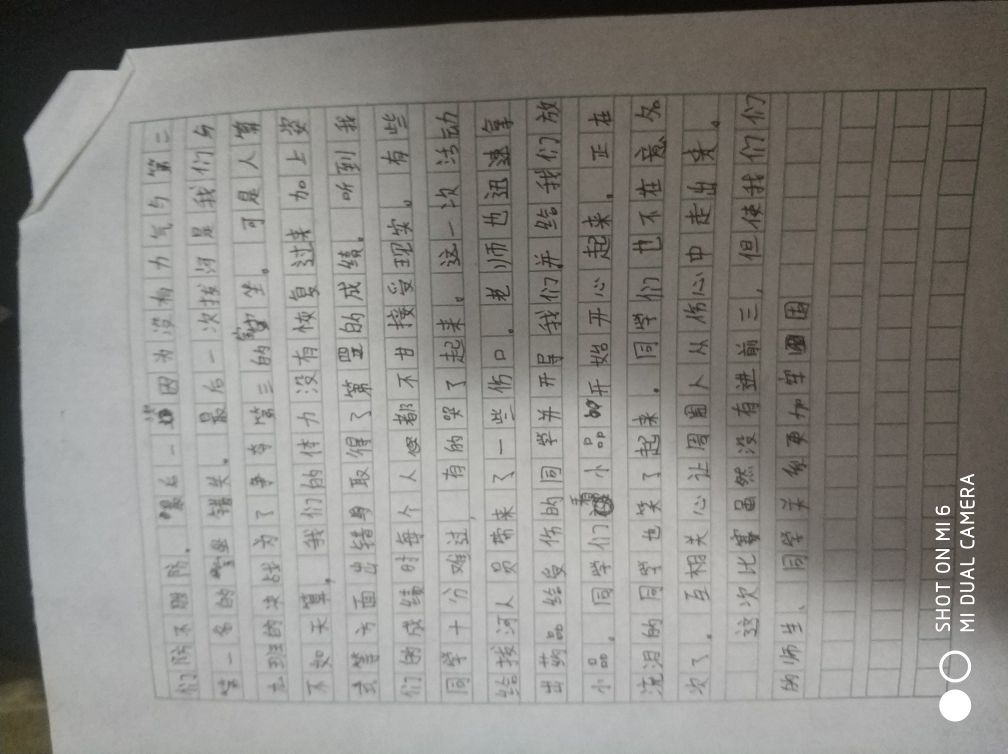 们防不胜防。最后一因为没有力气与第二
第一名的错失。最后一次拔河是我们与
班的决战为了争夺第三的坐。可是人算
不如天算，我们的体力没有恢复过来加上姿
式等方面出错取得了第四的成绩。听到我
们的成绩时每个人都不甘接受现实。有些
同学十分难过，有的哭了起来。这一次活动
给拔河人员带来了一些伤口。老师也迅速拿
出药品给受伤的同学并开导我们并给我们放
小品。同学们看小品开始开心起来。正在
流泪的同学也笑了起来。同学们也不在意名
次了。互相关心让周围人从伤心中走出来。
这次比赛虽然没有进前三，但使我们们
的师生、同学关系更加牢固
SHOT ON MI 6
MI DUAL CAMERA